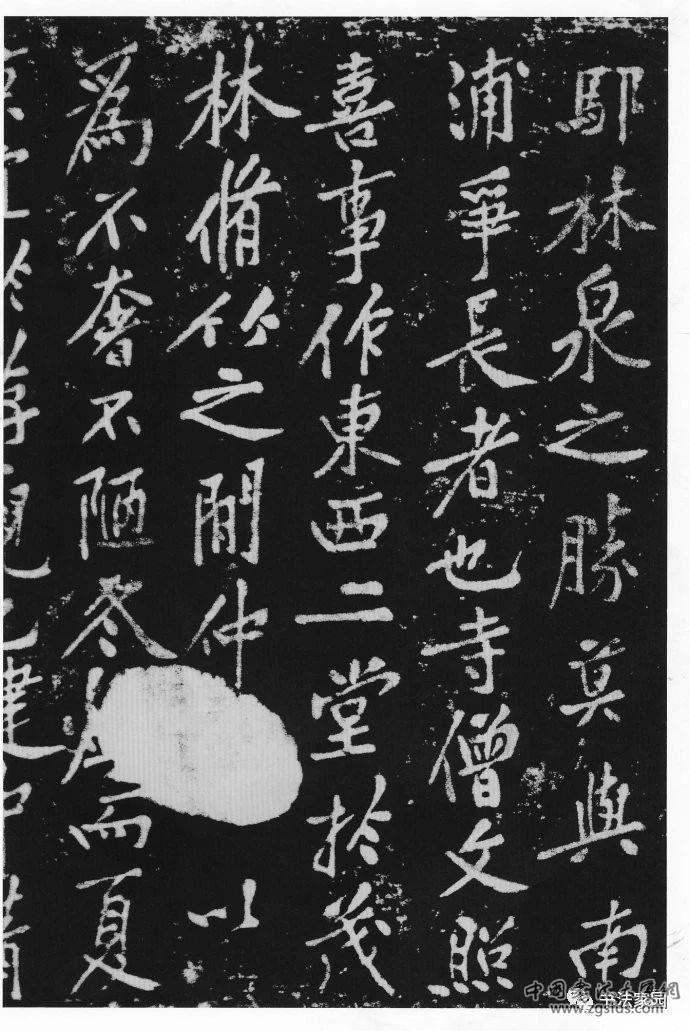 林泉之勝莫與南
浦爭長者也寺僧文照
喜事作東西二堂於茂
林脩竹之間仲以
為不奢不陋冬而夏
於觀建
书法家园
www.zgsfds.com